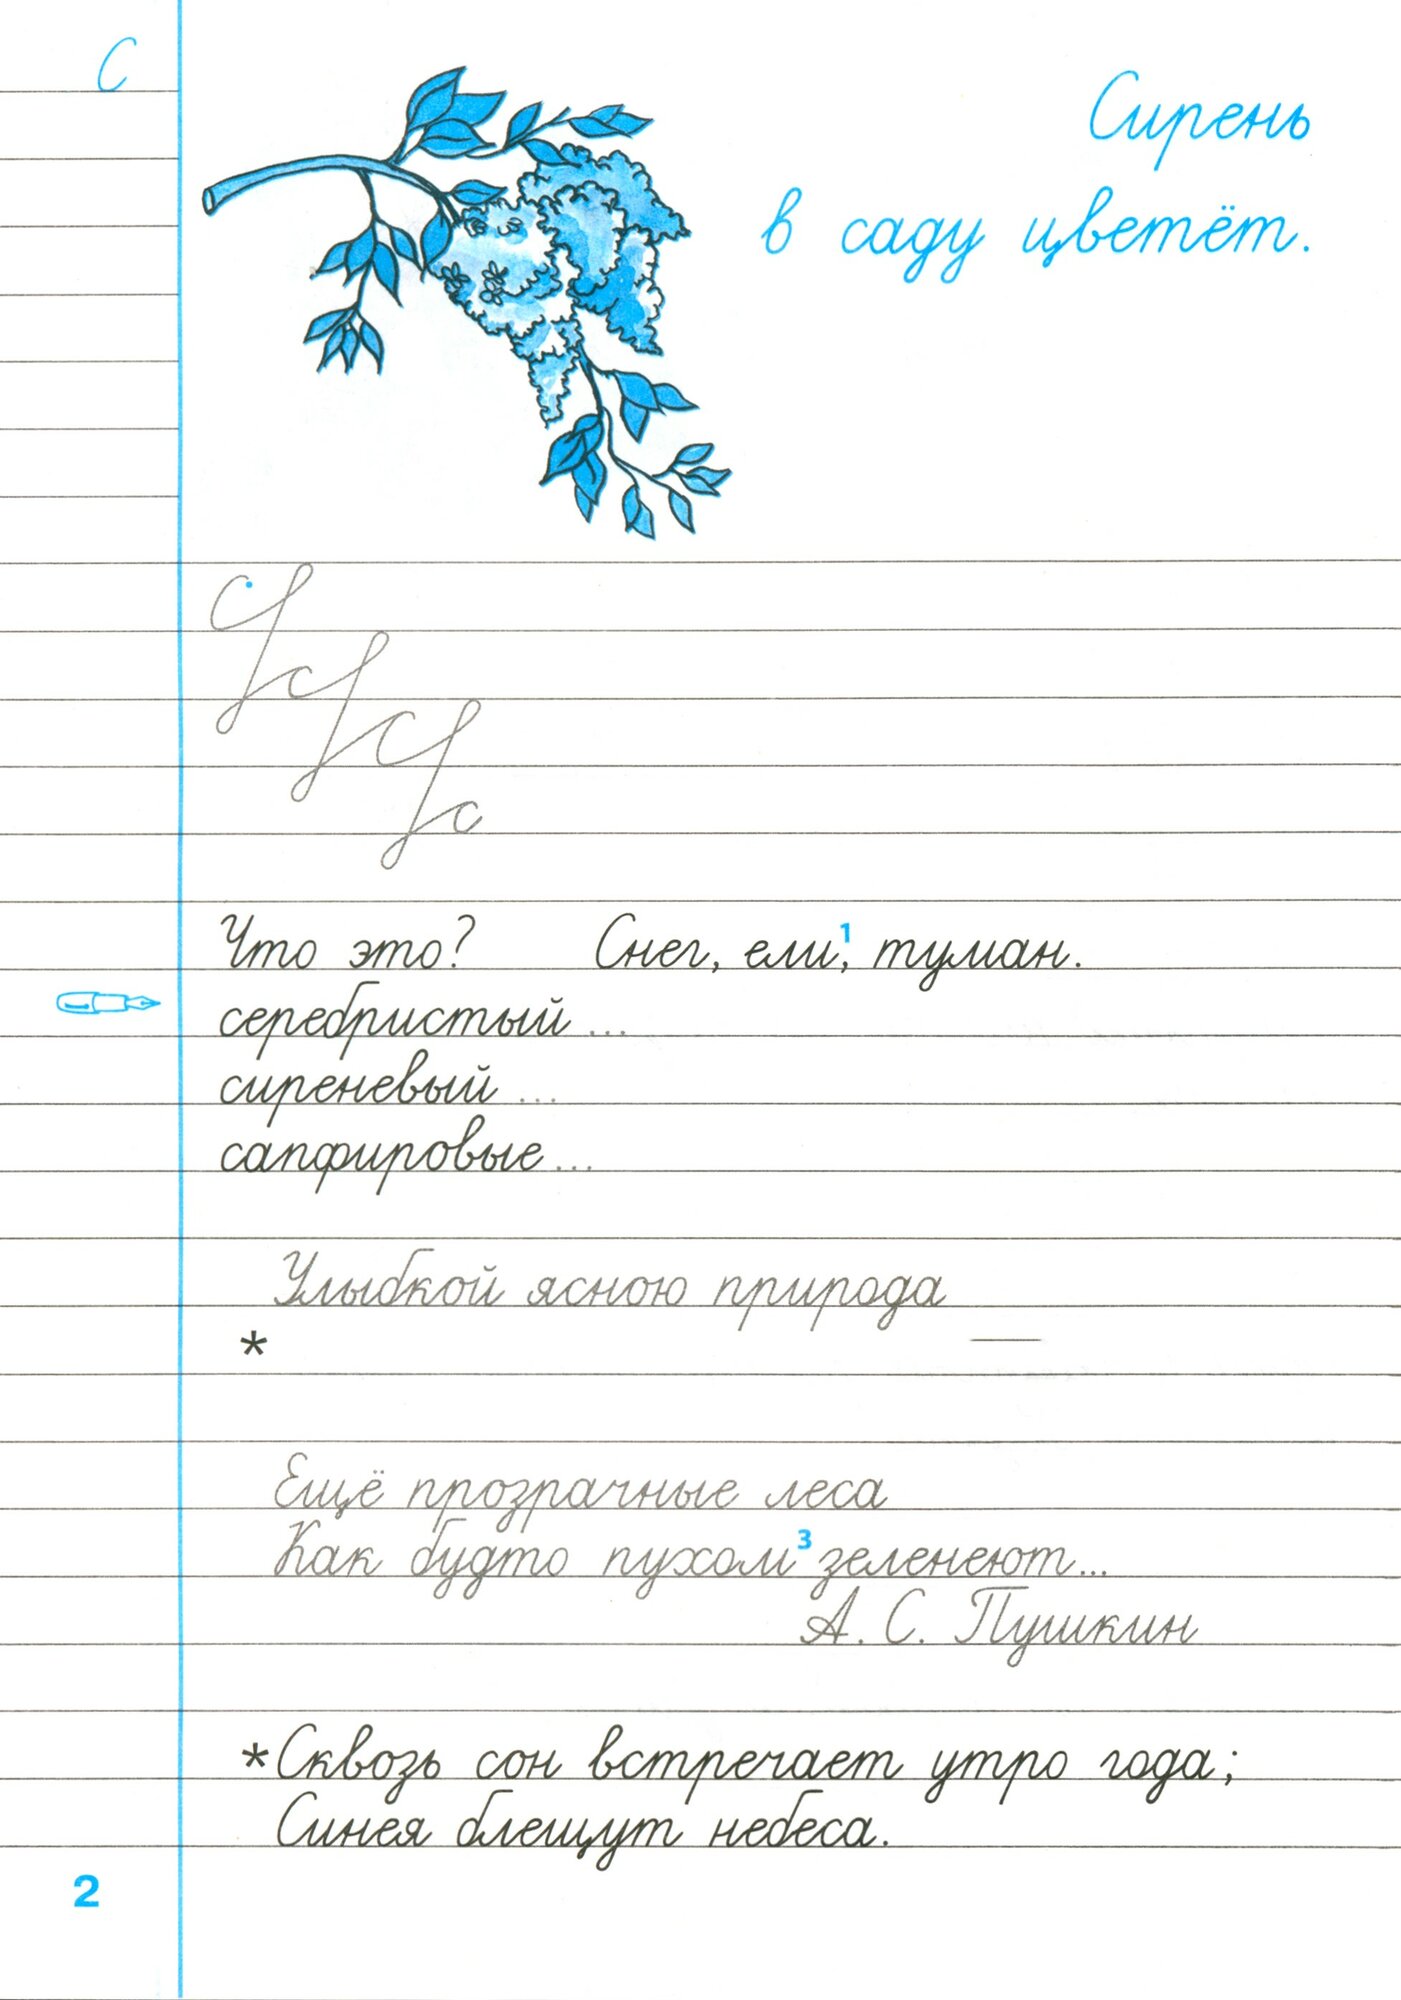 С
Сирень
в саду цветёт.
Что это? Снег, ели,¹ туман.
серебристый ...
сиреневый ...
сапфировые ...
Улыбкой ясною природа
*
Ещё прозрачные леса
Как будто пухом³ зеленеют...
А. С. Пушкин
*Сквозь сон встречает утро года;
Синея блещут небеса.
2